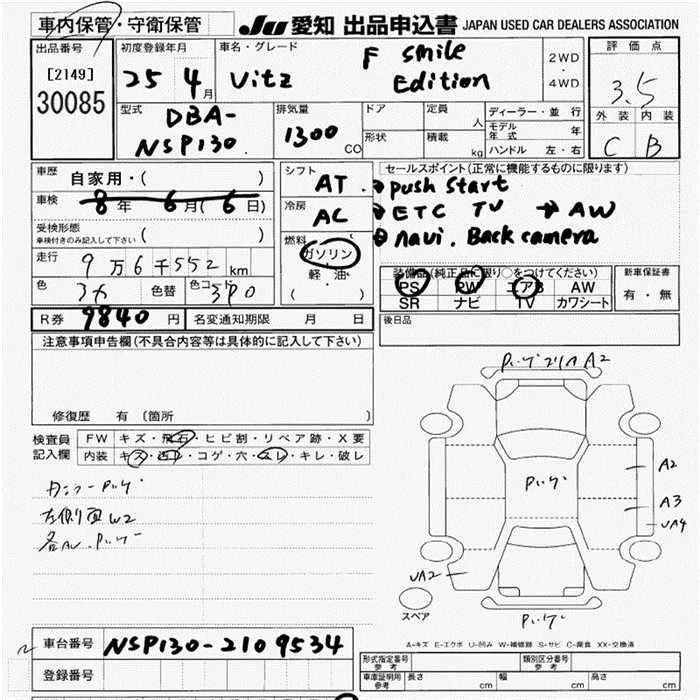 車内保管・守衛保管 JU 愛知 出品申込書 JAPAN USED CAR DEALERS ASSOCIATION
出品番号 初度登録年月 車名・グレード 評価点
[2149] 25 4月 Vitz F Smile Edition 2WD・4WD 3.5
30085
外装 内装
C B
型式 排気量 ドア 定員 人 ディーラー・並行
DBA-NSP130 1300 CC 形状 積載 kg モデル年式 年
ハンドル 左・右
車歴 自家用・( )
車検 8年 6月(6日)
受検形態 ( )
車検付きのみ記入して下さい
走行 9万6千552km
色 色替 色コード
シフト AT
冷房 AC
燃料 ガソリン
軽油
( )
セールスポイント(正常に機能するものに限ります)
push start
ETC TV AW
navi. Back camera
装備品(純正品に限り○をつけてください) 新車保証書
PS PW エアB AW 有・無
SR ナビ TV カワシート
R券 9840円 名変通知期限 月 日 後日品
注意事項申告欄(不具合内容等は具体的に記入して下さい)
修復歴 有 〔箇所
検査員記入欄 FW キズ・飛石・ヒビ割・リペア跡・X要
内装 キズ・凹・コゲ・穴・スレ・キレ・破レ
左側面W2
A2
A2
A3
UA4
UA2
スペア
A-キズ E-エクボ U-凹み W-補修跡 S-サビ C-腐食 XX-交換済
車台番号 NSP130-2109534
登録番号
形式指定番号 参考 類別区分番号 参考
車庫証明用 参考 長さ cm 幅 cm 高さ cm